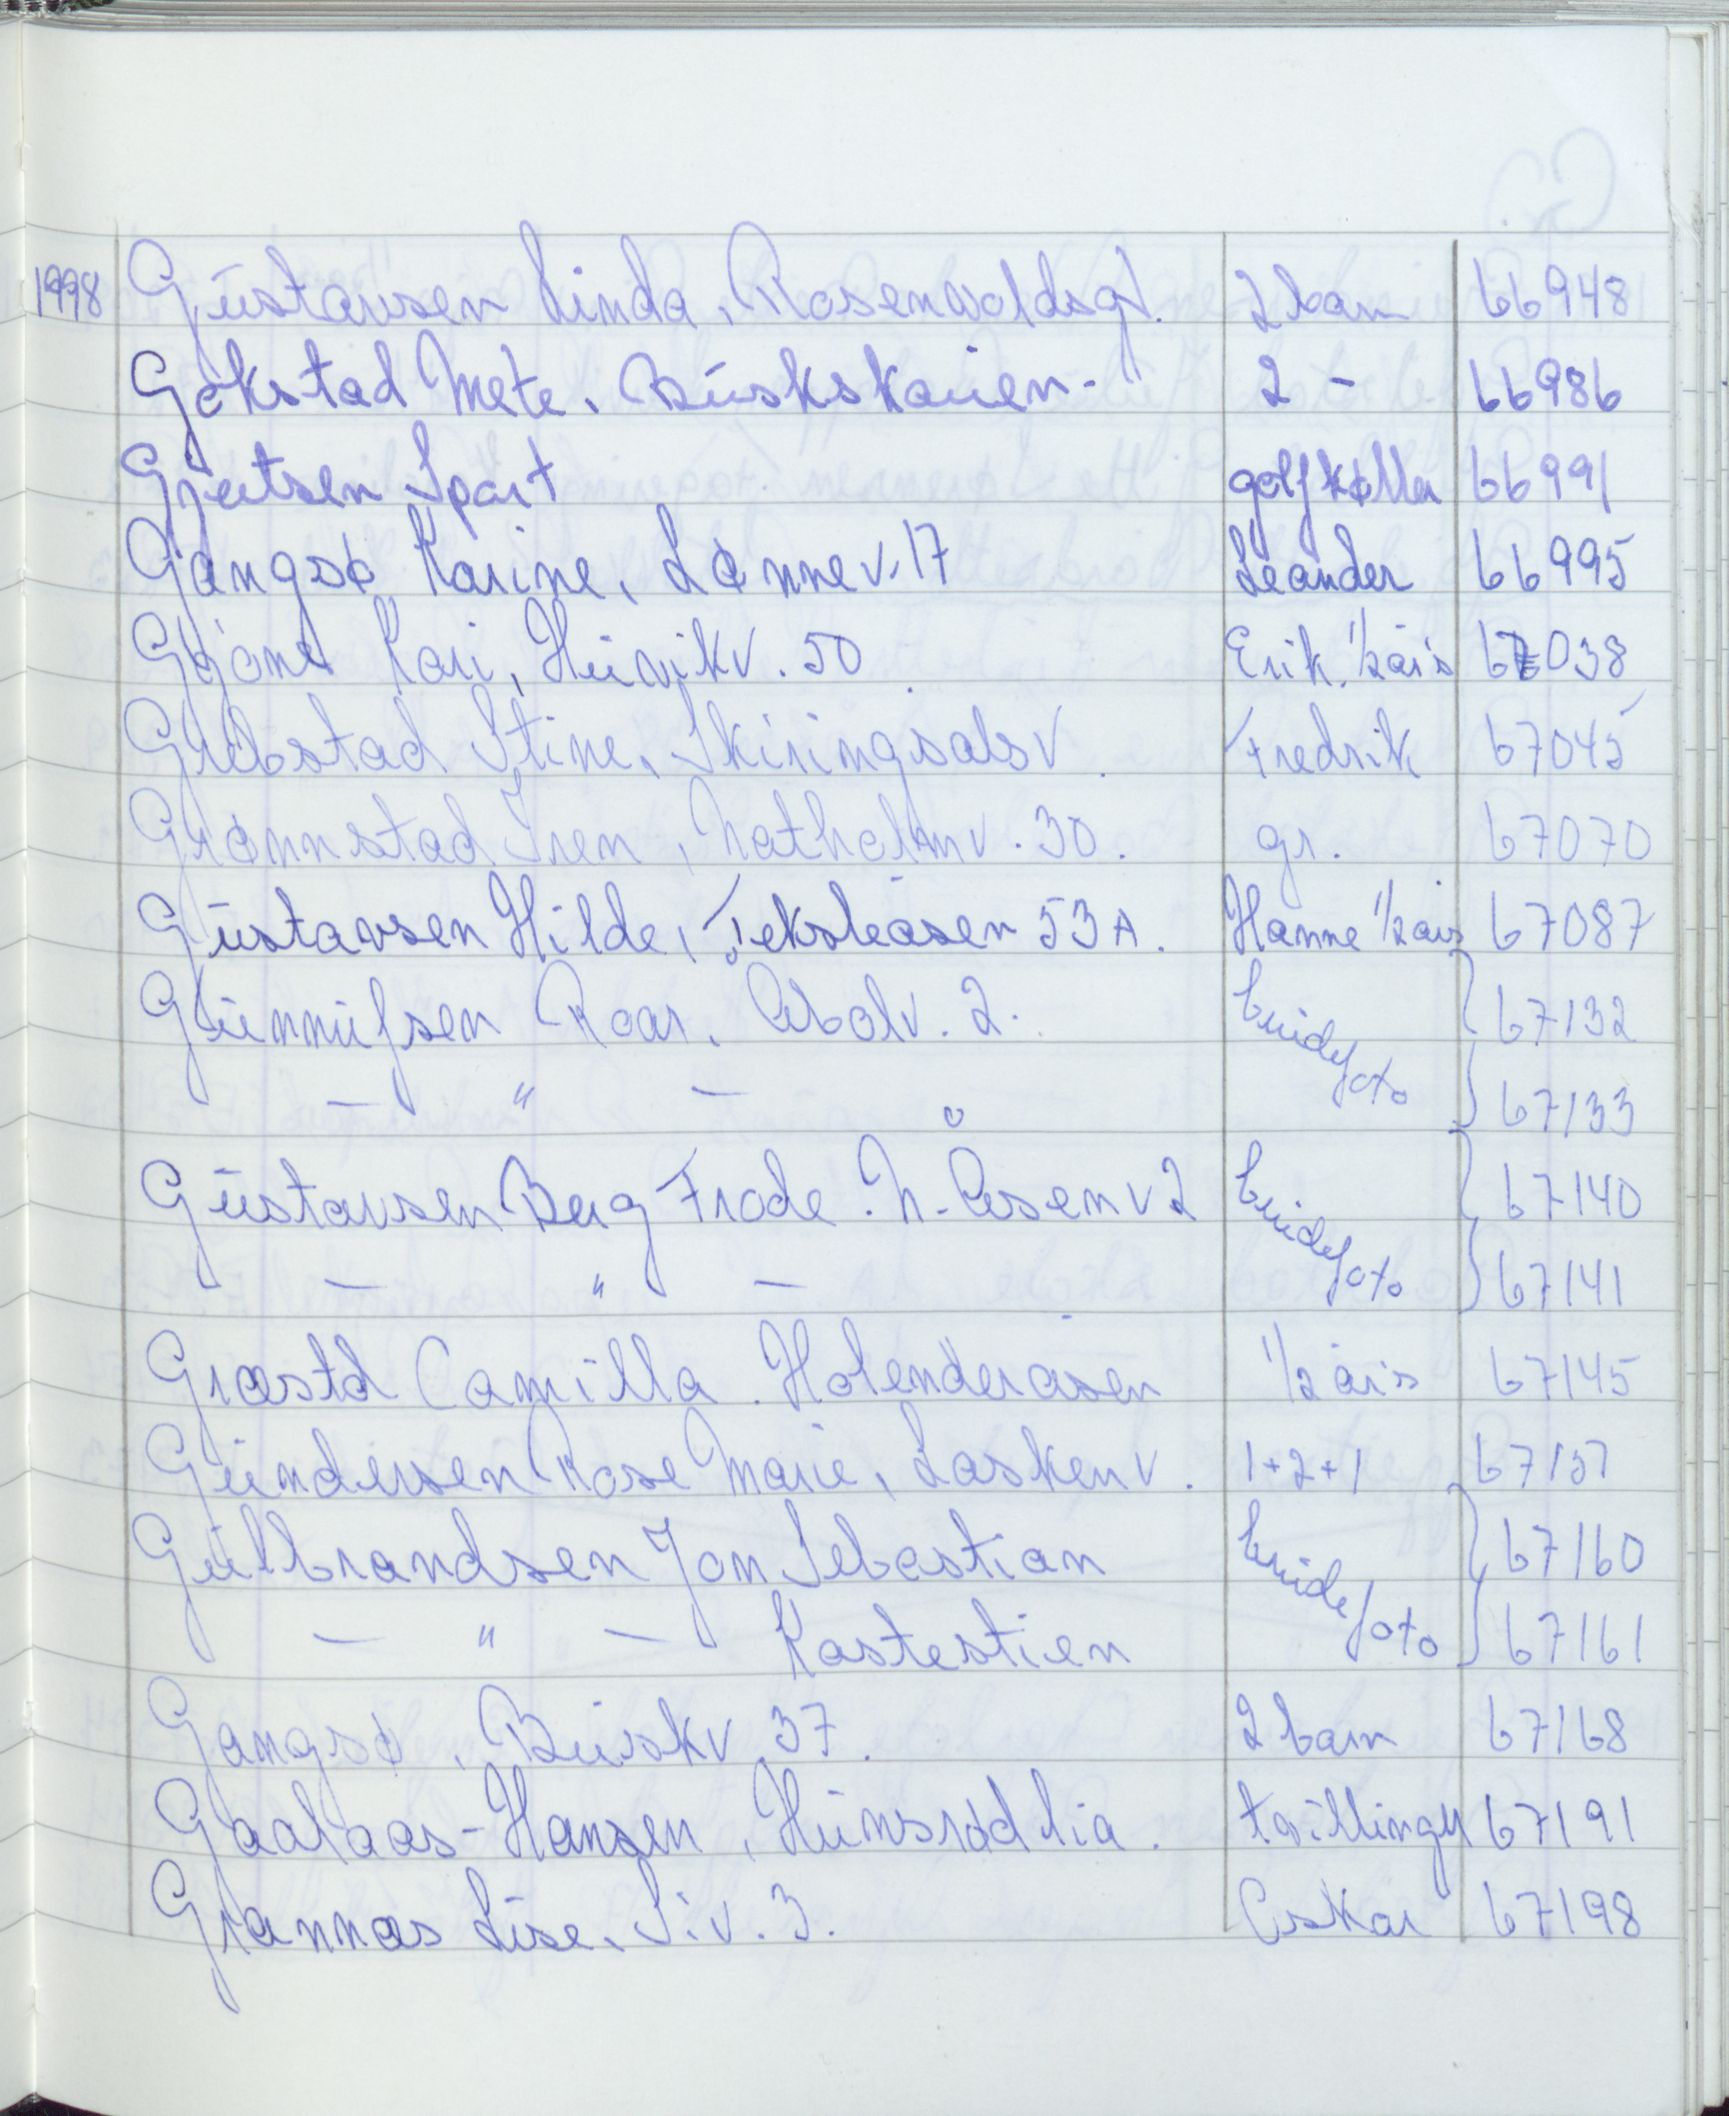 1998 Gustavsen Linda, Rosenvoldsgt. 2 barn 66948
Gokstad Mete. Buskskauen - 2 - 66986
Gjertsen Sport golfkøller 66991
Gangsø Karine, Lønnev. 17 Leander 66995
Gjone Kari, Huvikv. 50 Erik. 1/2 års 67038
Grebstad Stine, Skiringsalsv. Fredrik 67045
Grønnstad Iren, Natholmv. 30. gr. 67070
Gustavsen Hilde, Fleksleåsen 53 A. Hanne 1/2 års 67087
Gunnufsen Roar. Åbolv. 2. brudefoto 67132
— " — 67133
Gustavsen Berg Frode. N. Åsenv 2 brudefoto 67140
— " — 67141
Græstd Camilla. Holenderåsen 1/2 års 67145
Gundersen Rose Marie, Laskenv. 1+2+1 67157
Gulbrandsen Jon Sebastian brudefoto 67160
— " — Kastestien 67161
Gangsø, Buskv. 37. 2 barn 67168
Gaalaas-Hansen, Hunsrødlia. tvillinger 67191
Grannæs Lise, S.v. 3. Oskar 67198